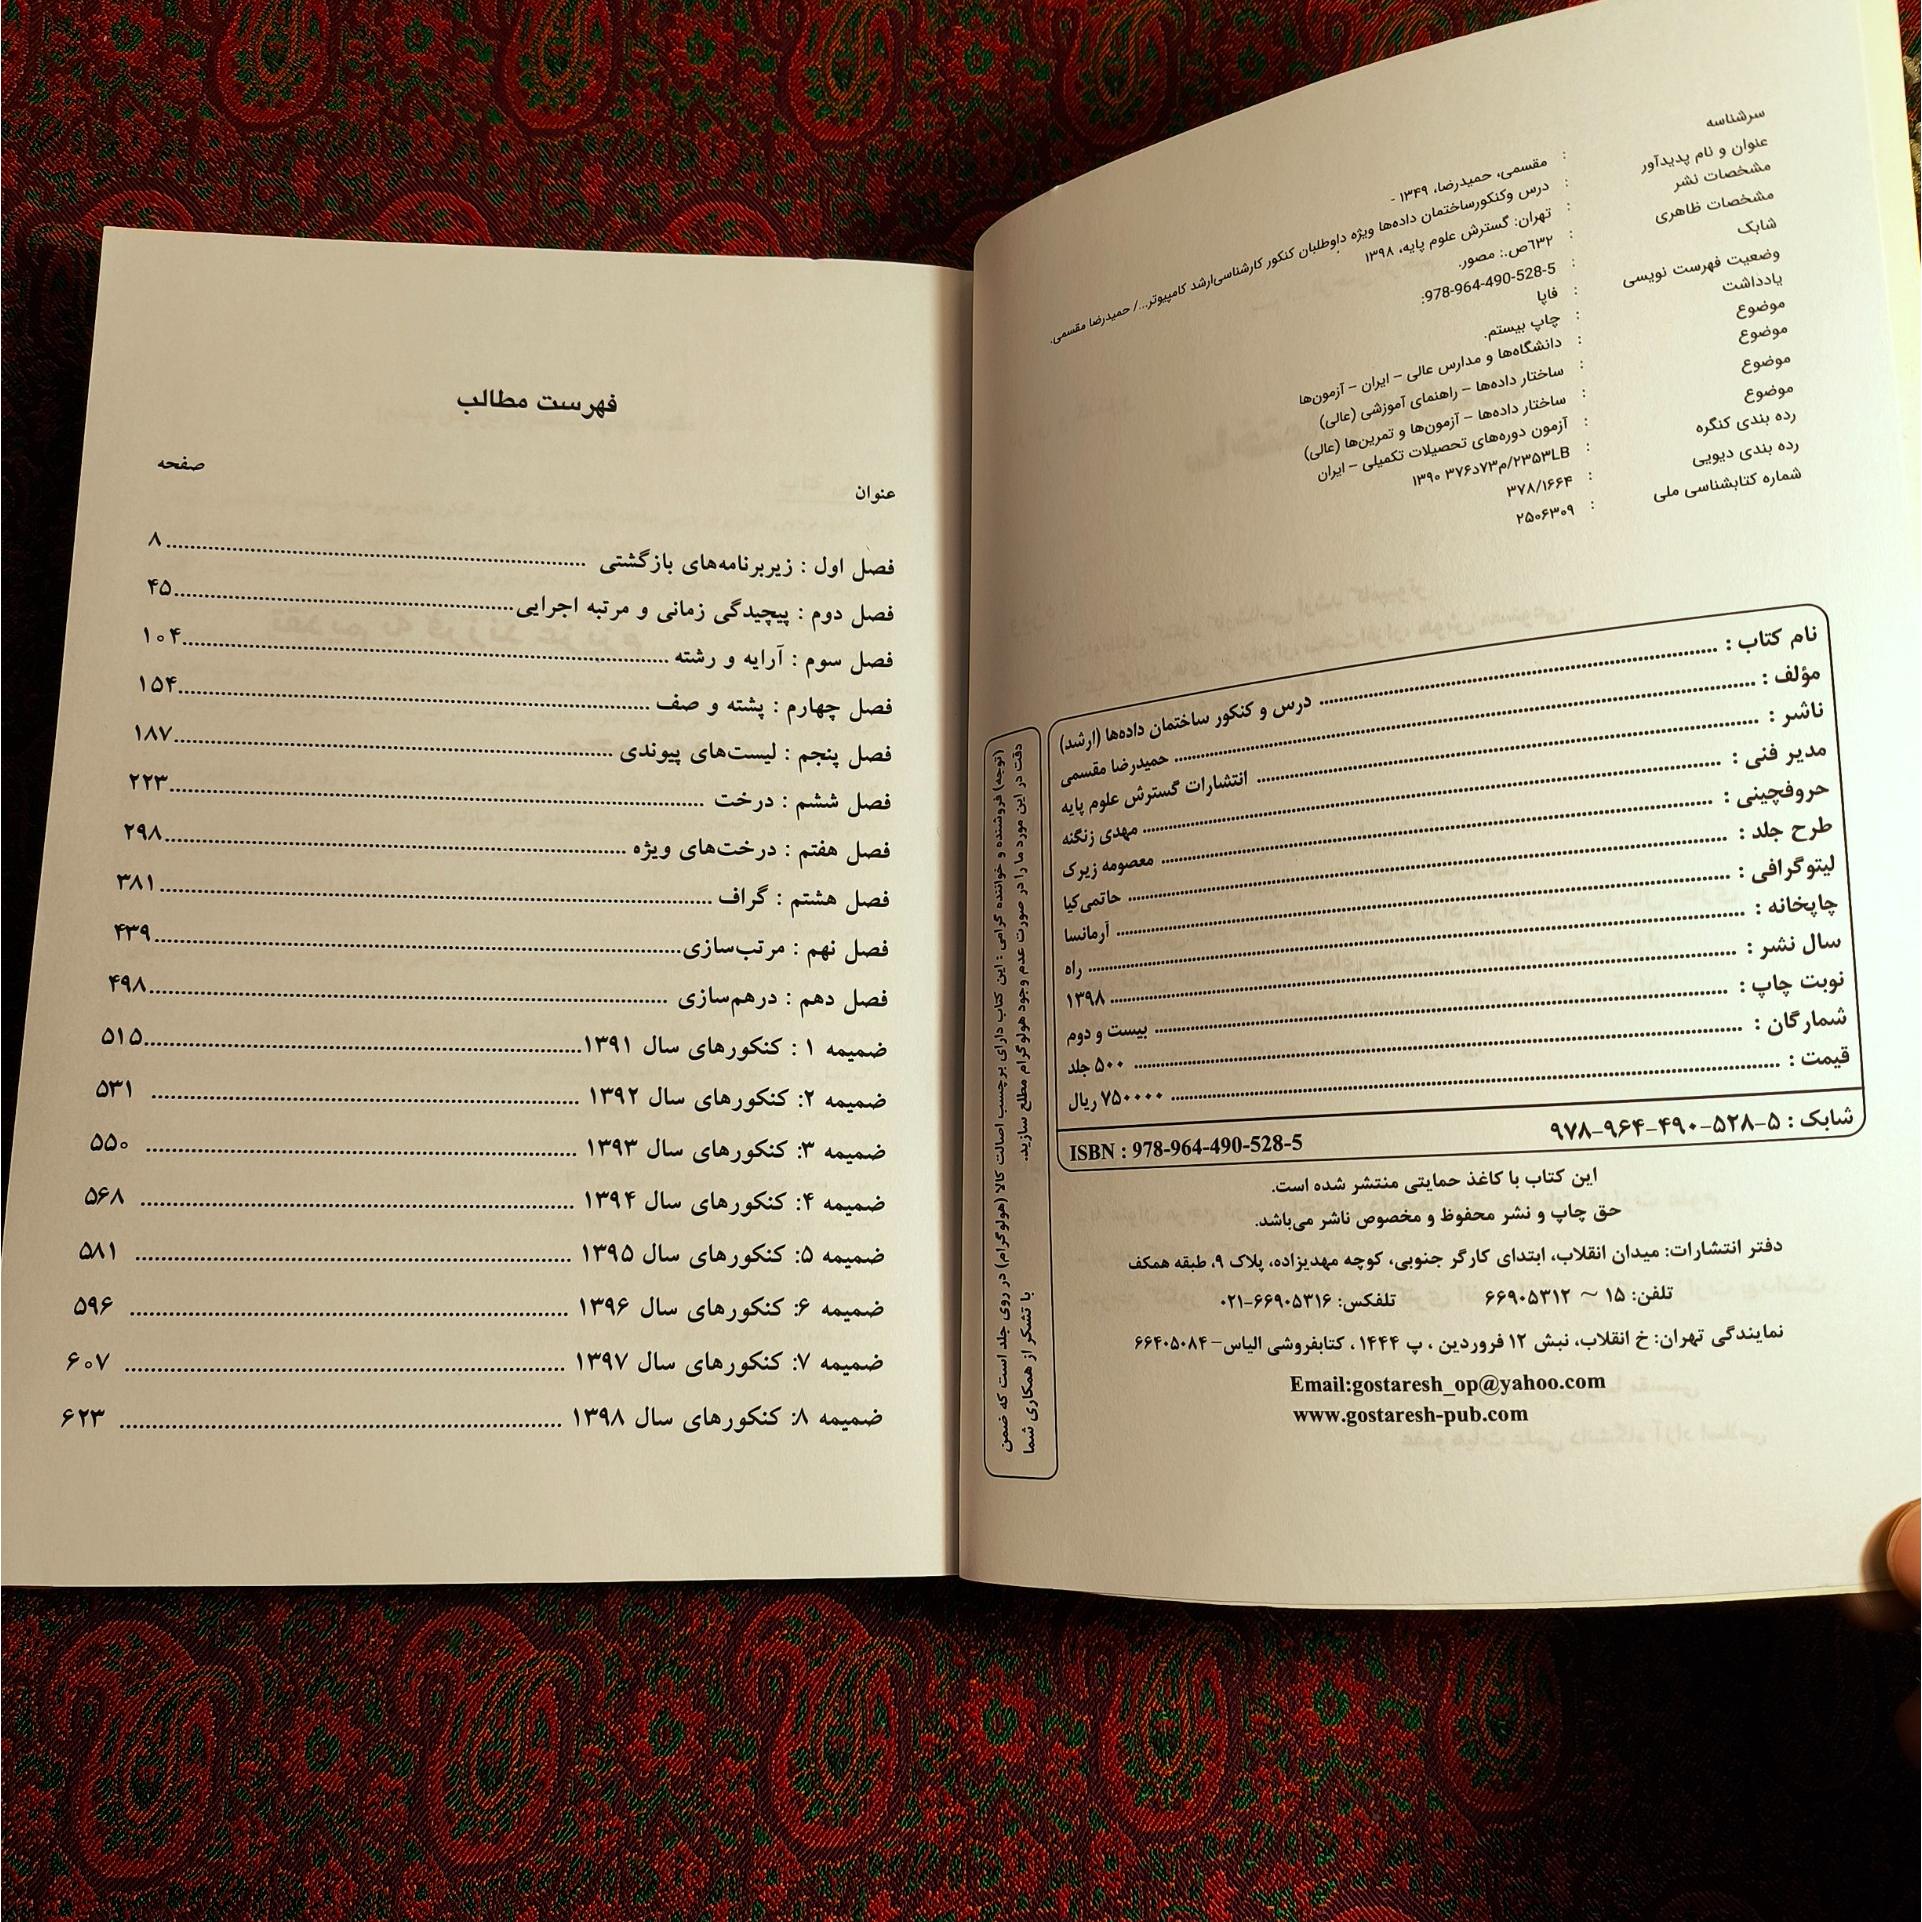 سرشناسه : مقسمی، حمیدرضا، ۱۳۴۹ -
عنوان و نام پدیدآور : درس وکنکورساختمان داده‌ها ویژه داوطلبان کنکور کارشناسی‌ارشد کامپیوتر.../ حمیدرضا مقسمی.
مشخصات نشر : تهران: گسترش علوم پایه، ۱۳۹۸
مشخصات ظاهری : ۶۳۲ص.: مصور.
شابک : 978-964-490-528-5:
وضعیت فهرست نویسی : فاپا
یادداشت : چاپ بیستم.
موضوع : دانشگاه‌ها و مدارس عالی – ایران – آزمون‌ها
موضوع : ساختار داده‌ها – راهنمای آموزشی (عالی)
موضوع : ساختار داده‌ها – آزمون‌ها و تمرین‌ها (عالی)
موضوع : آزمون دوره‌های تحصیلات تکمیلی – ایران
رده بندی کنگره : ۲۳۵۳LB/م۷۳د۳۷۶ ۱۳۹۰
رده بندی دیویی : ۳۷۸/۱۶۶۴
شماره کتابشناسی ملی : ۲۵۰۶۳۰۹
نام کتاب : درس و کنکور ساختمان داده‌ها (ارشد)
مؤلف : حمیدرضا مقسمی
ناشر : انتشارات گسترش علوم پایه
مدیر فنی : مهدی زنگنه
حروفچینی : معصومه زیرک
طرح جلد : حاتمی‌کیا
لیتوگرافی : آرمانسا
چاپخانه : راه
سال نشر : ۱۳۹۸
نوبت چاپ : بیست و دوم
شمارگان : ۵۰۰ جلد
قیمت : ۷۵۰۰۰۰ ریال
شابک : ۵-۵۲۸-۴۹۰-۹۶۴-۹۷۸ ISBN : 978-964-490-528-5
(توجه) فروشنده و خواننده گرامی : این کتاب دارای برچسب اصالت کالا (هولوگرام) در روی جلد است که ضمن
دقت در این مورد ما را در صورت عدم وجود هولوگرام مطلع سازید. با تشکر از همکاری شما
این کتاب با کاغذ حمایتی منتشر شده است.
حق چاپ و نشر محفوظ و مخصوص ناشر می‌باشد.
دفتر انتشارات: میدان انقلاب، ابتدای کارگر جنوبی، کوچه مهدیزاده، پلاک ۹، طبقه همکف
تلفن: ۱۵ ~ ۶۶۹۰۵۳۱۲ تلفکس: ۶۶۹۰۵۳۱۶-۰۲۱
نمایندگی تهران: خ انقلاب، نبش ۱۲ فروردین ، پ ۱۴۴۴ ، کتابفروشی الیاس– ۶۶۴۰۵۰۸۴
Email:gostaresh_op@yahoo.com
www.gostaresh-pub.com
فهرست مطالب
عنوان صفحه
فصل اول : زیربرنامه‌های بازگشتی ۸
فصل دوم : پیچیدگی زمانی و مرتبه اجرایی ۴۵
فصل سوم : آرایه و رشته ۱۰۴
فصل چهارم : پشته و صف ۱۵۴
فصل پنجم : لیست‌های پیوندی ۱۸۷
فصل ششم : درخت ۲۲۳
فصل هفتم : درخت‌های ویژه ۲۹۸
فصل هشتم : گراف ۳۸۱
فصل نهم : مرتب‌سازی ۴۳۹
فصل دهم : درهم‌سازی ۴۹۸
ضمیمه ۱ : کنکورهای سال ۱۳۹۱ ۵۱۵
ضمیمه ۲: کنکورهای سال ۱۳۹۲ ۵۳۱
ضمیمه ۳: کنکورهای سال ۱۳۹۳ ۵۵۰
ضمیمه ۴: کنکورهای سال ۱۳۹۴ ۵۶۸
ضمیمه ۵: کنکورهای سال ۱۳۹۵ ۵۸۱
ضمیمه ۶: کنکورهای سال ۱۳۹۶ ۵۹۶
ضمیمه ۷: کنکورهای سال ۱۳۹۷ ۶۰۷
ضمیمه ۸: کنکورهای سال ۱۳۹۸ ۶۲۳